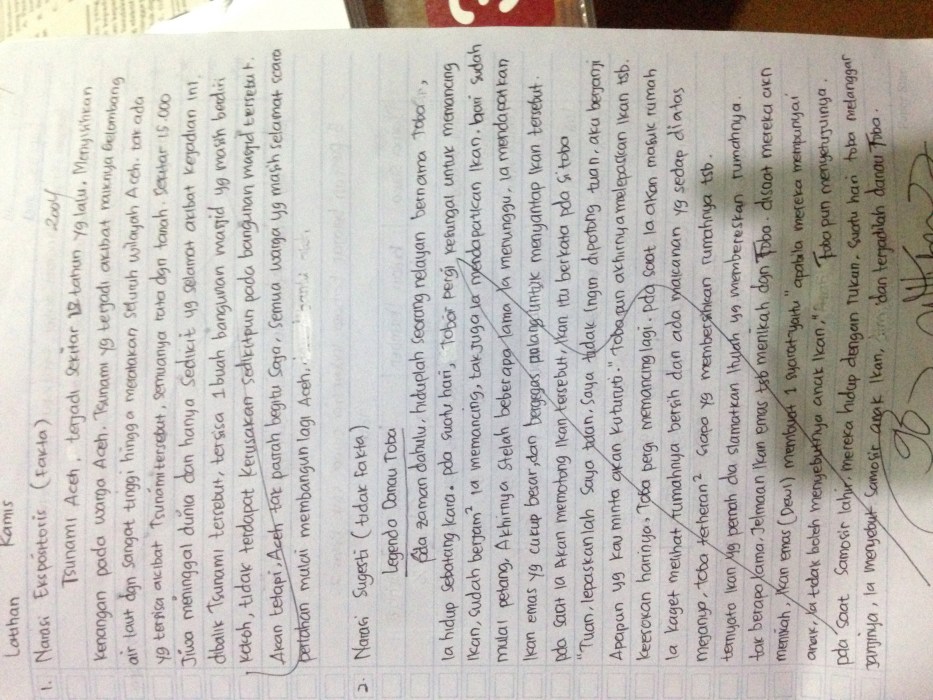 Latihan Kamis
1. Narasi Ekspositoris (fakta)
2004
Tsunami Aceh, terjadi sekitar 12 tahun yg lalu. Menyisihkan
kenangan pada warga Aceh. Tsunami yg terjadi akibat naiknya Gelombang
air laut dgn sangat tinggi hingga meratakan seluruh wilayah Aceh. tak ada
yg tersisa akibat Tsunami tersebut, semuanya rata dgn tanah. Sekitar 15.000
Jiwa meninggal dunia dan hanya sedikit yg selamat akibat kejadian ini.
dibalik Tsunami tersebut, tersisa 1 buah bangunan masjid yg masih berdiri
kokoh, tidak terdapat kerusakan sedikitpun pada bangunan masjid tersebut.
Akan tetapi, Aceh tak pasrah begitu saja, semua warga yg masih selamat scara
perlahan mulai membangun lagi Aceh.
2. Narasi Sugesti (tidak fakta)
Legenda Danau Toba
pda zaman dahulu, hiduplah seorang nelayan bernama Toba,
Ia hidup sebatang kara. pda suatu hari, Toba pergi kesungai untuk memancing
Ikan, sudah berjam² ia memancing, tak juga ia mendapatkan Ikan. hari sudah
mulai petang, Akhirnya stelah beberapa lama Ia menunggu, ia mendapatkan
Ikan emas yg cukup besar, dan bergegas pulang untuk menyantap Ikan tersebut.
pda saat Ia Akan memotong Ikan tersebut, Ikan itu berkata pda si toba
"Tuan, lepaskanlah saya tuan, saya tidak ingin dipotong tuan, aku berjanji
Apapun yg kau minta akan kuturuti." Toba pun akhirnya melepaskan Ikan tsb.
keesokan harinya, Toba pergi memancing lagi. pda saat Ia akan masuk rumah
Ia kaget melihat rumahnya bersih dan ada makanan yg sedap diatas
mejanya, toba terheran² siapa yg membersihkan rumahnya tsb.
ternyata Ikan yg pernah dia slamatkan Itulah yg membereskan rumahnya.
tak berapa lama, Jelmaan Ikan emas tsb menikah dgn Toba. disaat mereka akn
menikah, Ikan emas (Dewi) membuat 1 syarat yaitu "apabila mereka mempunyai
anak, Ia tidak boleh menyebutnya anak Ikan," Toba pun menyetujuinya.
pda saat Samosir lahir, mereka hidup dengan rukun. suatu hari toba melanggar
janjinya, Ia menyebut Samosir anak Ikan, dan terjadilah danau Toba.